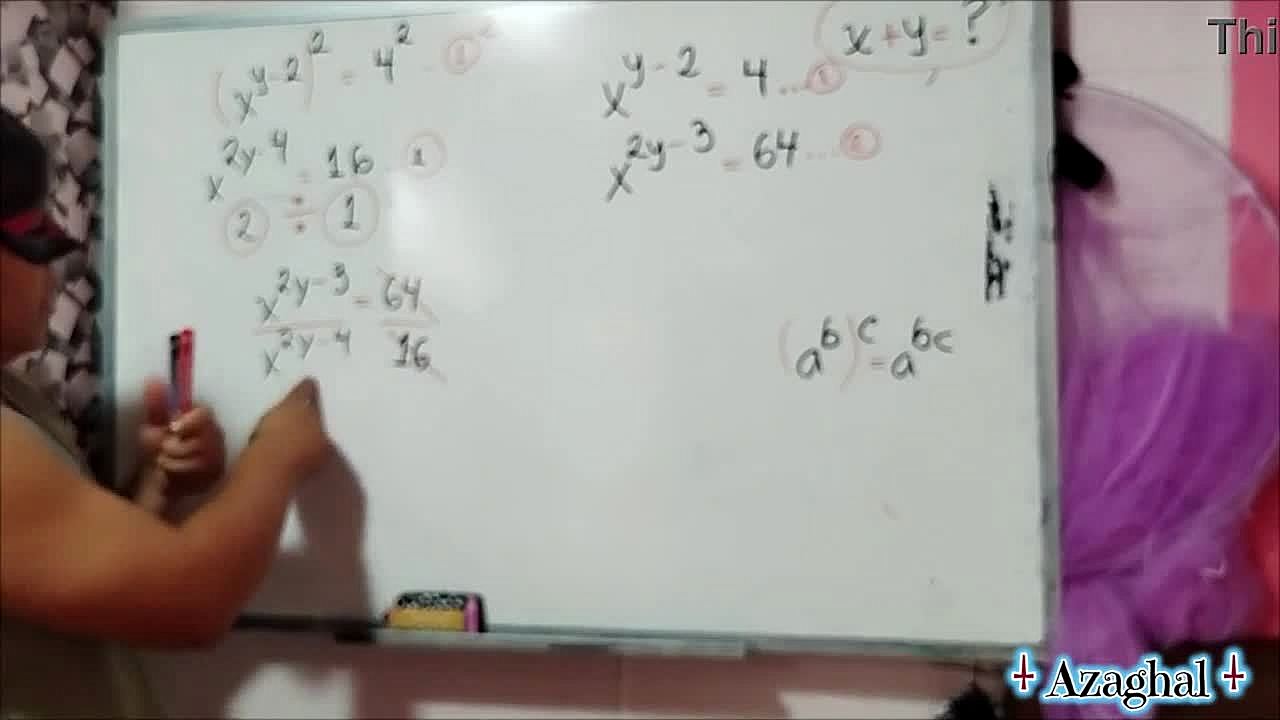 (x^{y-2})^2 = 4^2 ... ①
x^{2y-4} = 16 ... ①
② ÷ ①
x^{2y-3} / x^{2y-4} = 64 / 16
x + y = ?
x^{y-2} = 4 ... ①
x^{2y-3} = 64 ... ②
(a^b)^c = a^{bc}
Thi
Azaghal